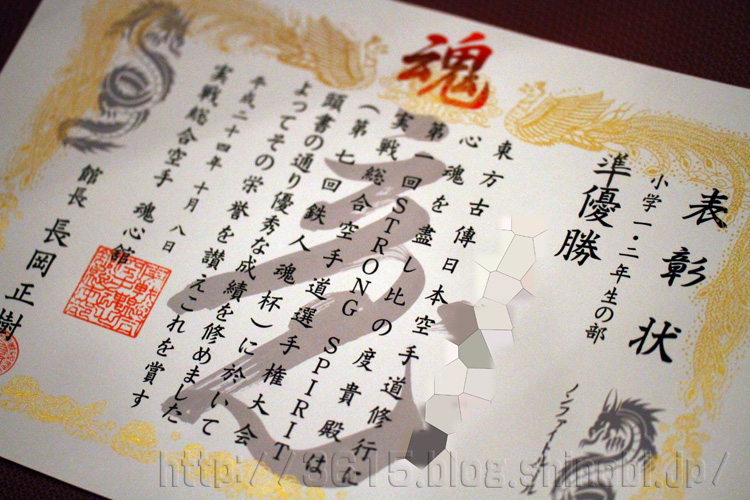 魂
表彰状
小学一・二年生の部
準優勝
ノンファイトルール
東方古傳日本空手道修行に
心魂を盡し比の度貴殿は
第一回STRONG SPIRIT
実戦総合空手道選手権大会
(第七回鉄人魂杯)に於いて
頭書の通り優秀な成績を修めました
よってその栄誉を讃えこれを賞す
平成二十四年十月八日
実戦総合空手 魂心館
館長 長岡正樹
http://3615.blog.shinobi.jp/